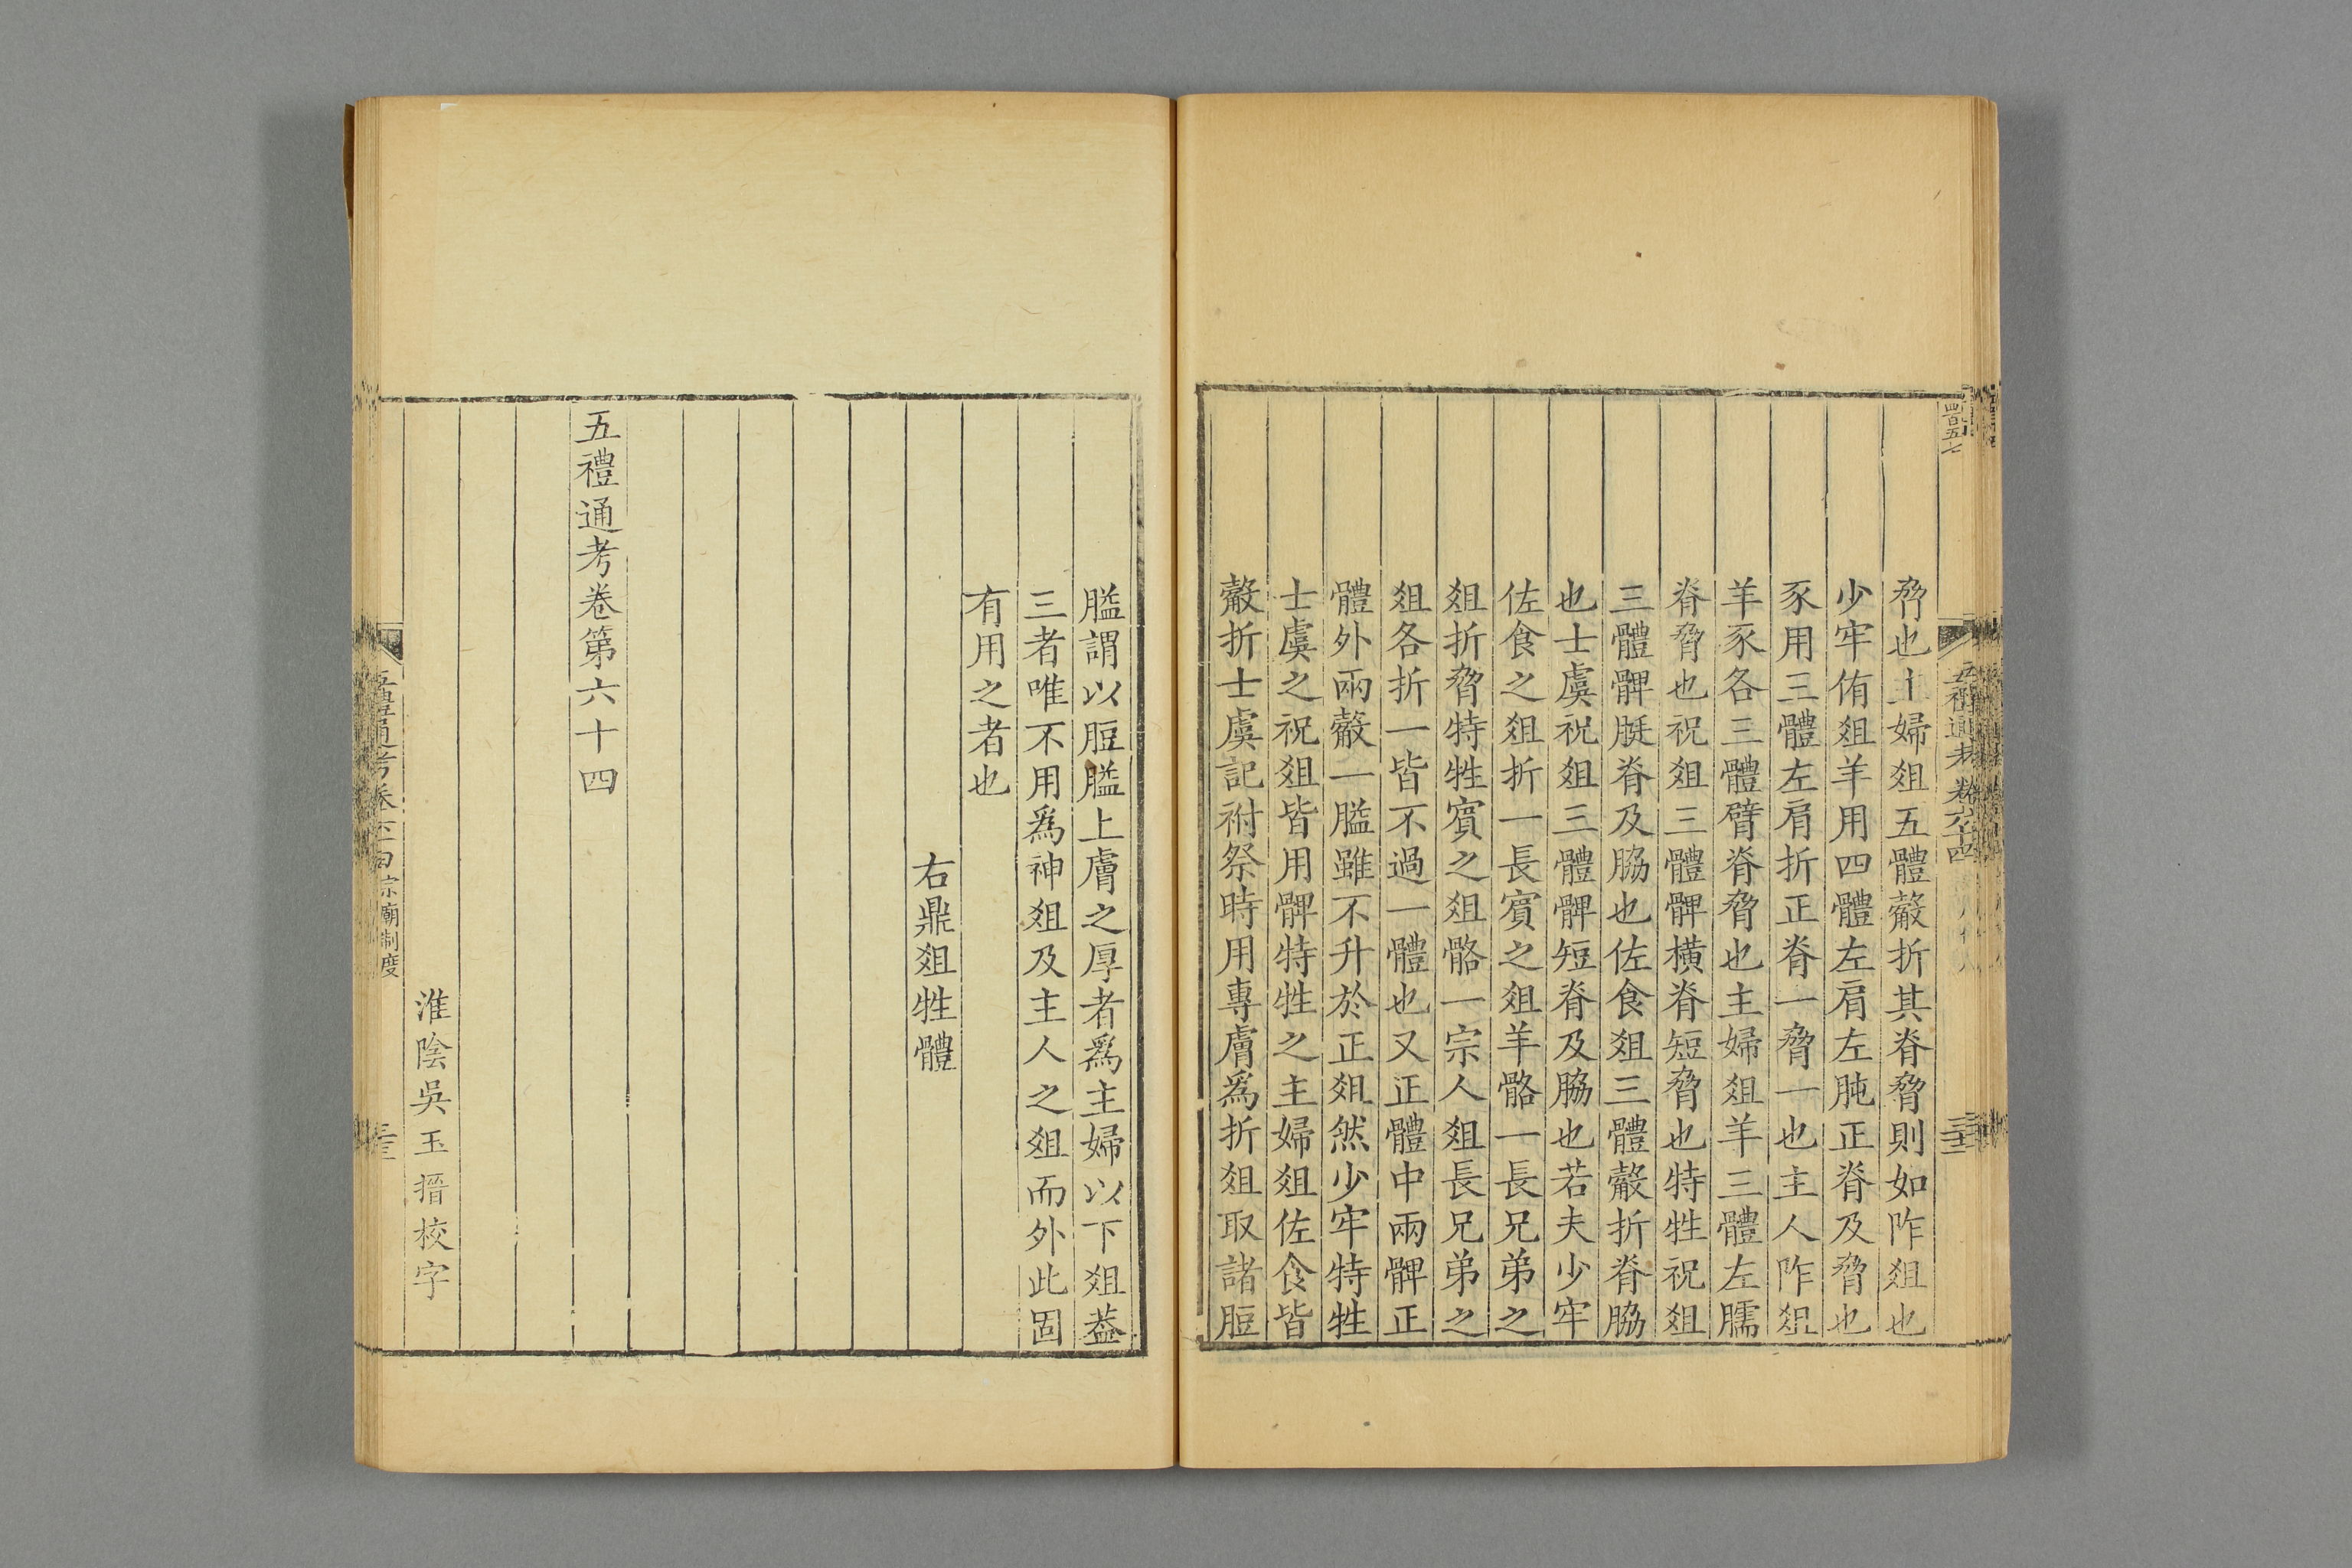 脅也主婦俎五體觳折其脊脅則如阼俎也
少牢侑俎羊用四體左肩左肫正脊及脅也
豕用三體左肩折正脊一脅一也主人阼俎
羊豕各三體臂脊脅也主婦俎羊三體左臑
脊脅也祝俎三體髀橫脊短脅也特牲祝俎
三體髀脡脊及脇也佐食俎三體觳折脊脇
也士虞祝俎三體髀短脊及脇也若夫少牢
佐食之俎折一長賓之俎羊骼一長兄弟之
俎折脅特牲賓之俎骼一宗人俎長兄弟之
俎各折一皆不過一體也又正體中兩髀正
體外兩觳一膉雖不升於正俎然少牢特牲
士虞之祝俎皆用髀特牲之主婦俎佐食皆
觳折士虞記祔祭時用專膚爲折俎取諸脰
膉謂以脰膉上膚之厚者爲主婦以下俎葢
三者唯不用爲神俎及主人之俎而外此固
有用之者也
右鼎俎牲體
五禮通考卷第六十四
淮陰吳玉搢校字
四百五七
五禮通考卷六十四
宗廟制度